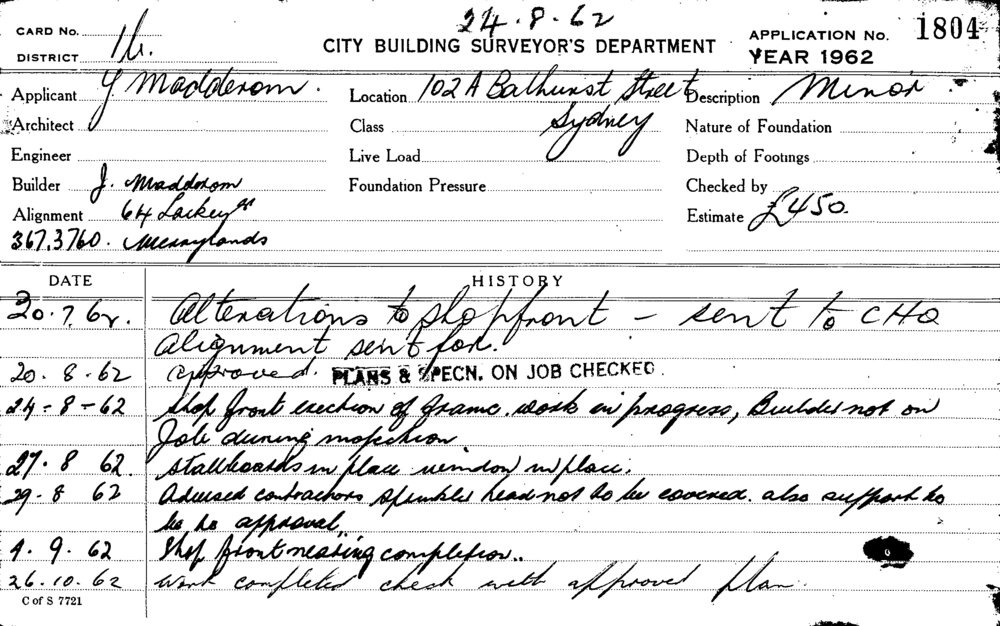 24.8.62
CARD No.
DISTRICT 16.
CITY BUILDING SURVEYOR'S DEPARTMENT
APPLICATION No. 1804
YEAR 1962
Applicant Y Madderom. Location 102A Bathurst Street Description Minor
Architect Class Sydney Nature of Foundation
Engineer Live Load Depth of Footings
Builder J. Madderom Foundation Pressure Checked by
Alignment 64 Lackey St Estimate £450.
367.3760. Merrylands
DATE HISTORY
20.7.62. Alterations to shopfront - sent to CHO
Alignment sent for.
20.8.62 Approved. PLANS & SPECN. ON JOB CHECKED.
24-8-62 Shop front erection of frame work in progress, Builder not on
Job during inspection
27.8 62. Stallboards in place window in place.
29.8 62 Advised contractors sprinkler head not to be covered. also support to
be to approval..
4.9.62 Shop front nearing completion..
26.10.62 work completed check with approved plan.
C of S 7721